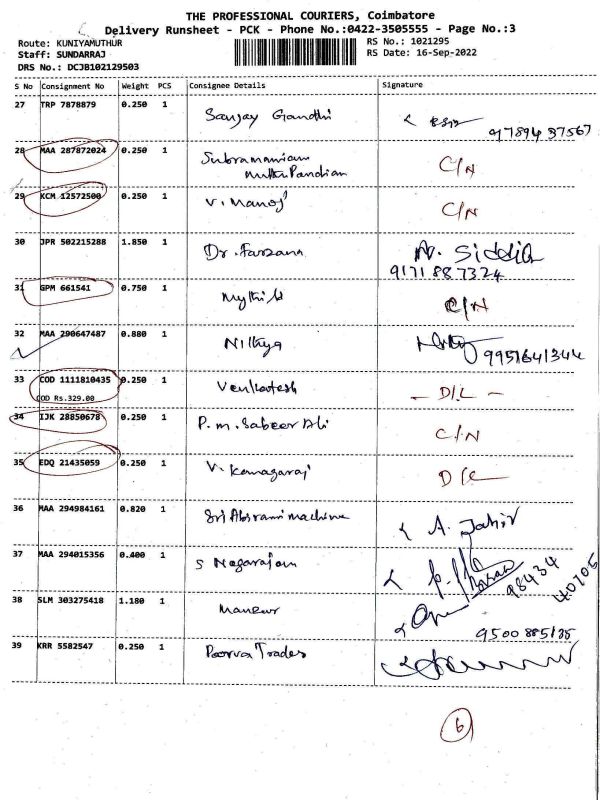 THE PROFESSIONAL COURIERS, Coimbatore
Delivery Runsheet - PCK - Phone No.:0422-3505555 - Page No.:3
Route: KUNIYAMUTHUR
RS No.: 1021295
Staff: SUNDARRAJ
RS Date: 16-Sep-2022
DRS No.: DCJB102129503
S No Consignment No Weight PCS Consignee Details Signature
27 TRP 7878879 0.250 1 Sanjay Gandhi
28 MAA 287872024 0.250 1 Subramaniam C/N
Muthu Pandian
29 KCM 12572500 0.250 1 V. Manoj C/N
30 JPR 502215288 1.850 1 Dr. Farzana
9171887324
31 GPM 661541 0.750 1 Mythili C/N
32 MAA 290647487 0.880 1 Nithya 9951641344
33 COD 1111810435 0.250 1 Venkatesh - D/L -
COD Rs.329.00
34 IJK 28850678 0.250 1 P.M. Sabeer Ali C/N
35 EDQ 21435059 0.250 1 V. Kamagaraj D/L
36 MAA 294984161 0.820 1 Sri Abirami machine A. Jahir
37 MAA 294015356 0.400 1 S Nagarajan
98434
40705
38 SLM 303275418 1.180 1 Mansur
39 KRR 5582547 0.250 1 Poorva Trades
6